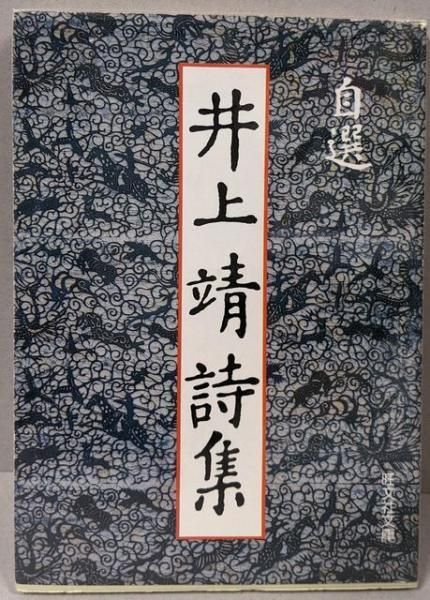 自選
井上靖詩集
旺文社文庫